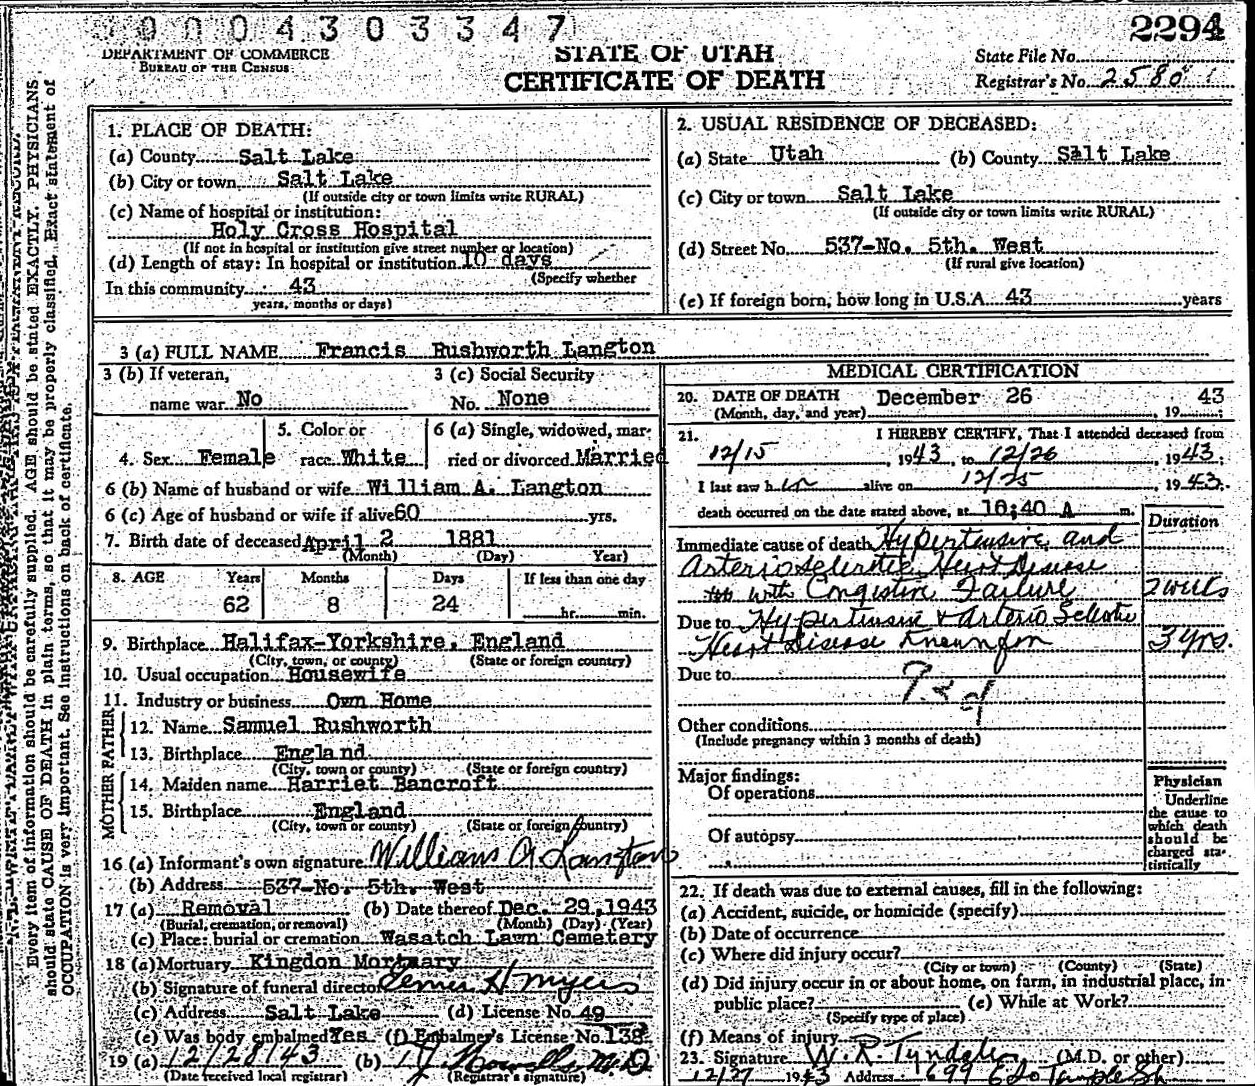 0004303347
2294
DEPARTMENT OF COMMERCE
BUREAU OF THE CENSUS
STATE OF UTAH
CERTIFICATE OF DEATH
State File No.
Registrar's No. 2580
Every item of information should be carefully supplied. AGE should be stated EXACTLY. PHYSICIANS
should state CAUSE OF DEATH in plain terms, so that it may be properly classified. Exact statement of
OCCUPATION is very important. See instructions on back of certificate.
1. PLACE OF DEATH:
(a) County Salt Lake
(b) City or town Salt Lake
(If outside city or town limits write RURAL)
(c) Name of hospital or institution:
Holy Cross Hospital
(If not in hospital or institution give street number or location)
(d) Length of stay: In hospital or institution 10 days
(Specify whether
In this community 43
years, months or days)
2. USUAL RESIDENCE OF DECEASED:
(a) State Utah (b) County Salt Lake
(c) City or town Salt Lake
(If outside city or town limits write RURAL)
(d) Street No. 537-No. 5th. West
(If rural give location)
(e) If foreign born, how long in U.S.A. 43 years
3 (a) FULL NAME Francis Rushworth Langton
3 (b) If veteran, 3 (c) Social Security
name war No No. None
4. Sex Female 5. Color or race White 6 (a) Single, widowed, married or divorced Married
6 (b) Name of husband or wife William A. Langton
6 (c) Age of husband or wife if alive 60 yrs.
7. Birth date of deceased April 2 1881
(Month) (Day) Year)
8. AGE Years Months Days If less than one day
62 8 24 hr. min.
9. Birthplace Halifax-Yorkshire, England
(City, town, or county) (State or foreign country)
10. Usual occupation Housewife
11. Industry or business Own Home
FATHER
12. Name Samuel Rushworth
13. Birthplace England
(City, town or county) (State or foreign country)
MOTHER
14. Maiden name Harriet Bancroft
15. Birthplace England
(City, town or county) (State or foreign country)
16 (a) Informant's own signature William A Langton
(b) Address 537-No. 5th. West
17 (a) Removal (b) Date thereof Dec. 29, 1943
(Burial, cremation, or removal) (Month) (Day) (Year)
(c) Place: burial or cremation Wasatch Lawn Cemetery
18 (a) Mortuary Kingdon Mortuary
(b) Signature of funeral director Elmer H Myers
(c) Address Salt Lake (d) License No. 49
(e) Was body embalmed Yes (f) Embalmer's License No. 138
19 (a) 12/28/43 (b) M.D.
(Date received local registrar) (Registrar's signature)
MEDICAL CERTIFICATION
20. DATE OF DEATH December 26 43
(Month, day, and year) , 19 ;
21. I HEREBY CERTIFY, That I attended deceased from
12/15, 1943, to 12/26, 1943;
I last saw her alive on 12/25, 1943.
death occurred on the date stated above, at 10:40 A m.
Duration
Immediate cause of death Hypertensive and
Arterio Sclerotic Heart Disease
with Congestive Failure 2 weeks
Due to Hypertensive & Arterio Sclerotic
Heart Disease Known for 3 yrs.
Due to
Other conditions
(Include pregnancy within 3 months of death)
Major findings:
Of operations
Of autopsy
Physician
Underline
the cause to
which death
should be
charged sta-
tistically
22. If death was due to external causes, fill in the following:
(a) Accident, suicide, or homicide (specify)
(b) Date of occurrence
(c) Where did injury occur?
(City or town) (County) (State)
(d) Did injury occur in or about home, on farm, in industrial place, in
public place? (e) While at Work?
(Specify type of place)
(f) Means of injury
23. Signature W. R. Tyndale (M.D. or other)
12/27 1943 Address 699 E So Temple St